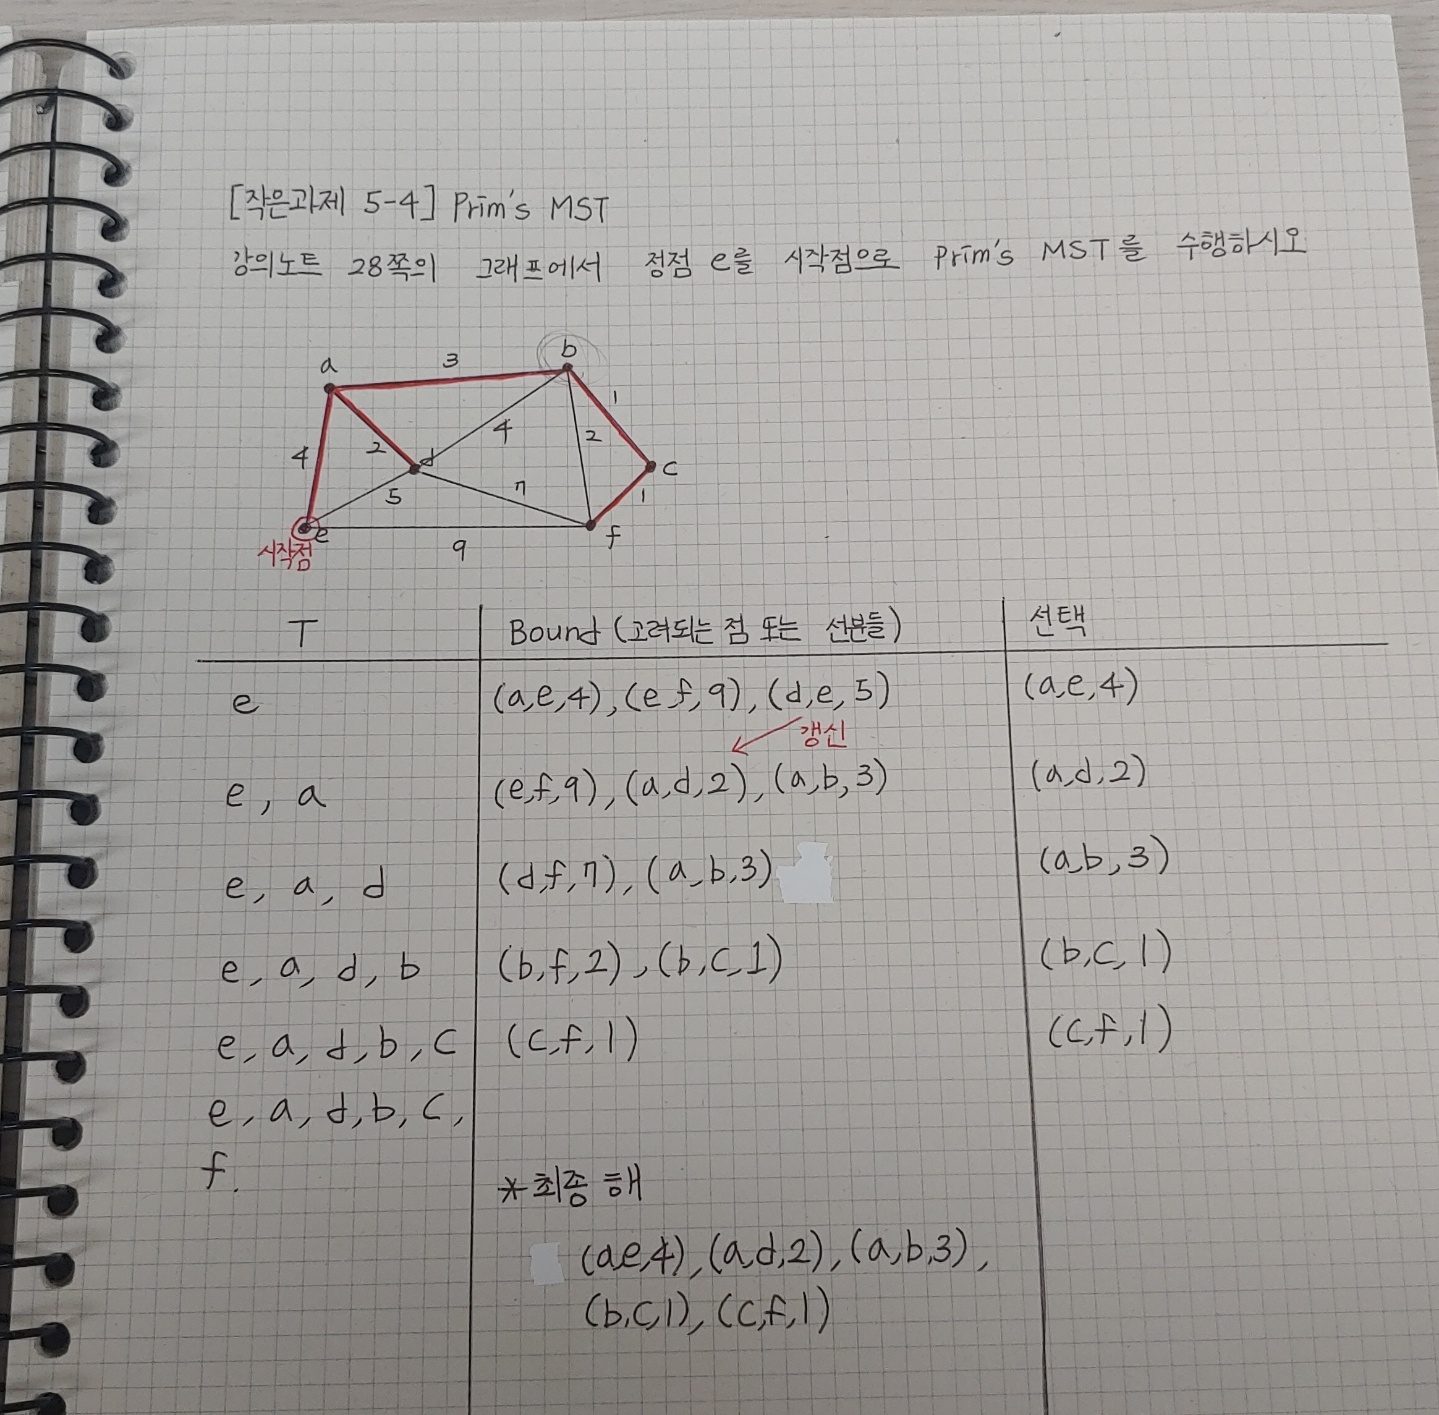 [작은과제 5-4] Prim's MST
강의노트 28쪽의 그래프에서 정점 e를 시작점으로 Prim's MST를 수행하시오
a 3 b
1
4 2 d 4 2
c
5 7 1
e f
시작점 9
T Bound (고려되는 점 또는 선분들) 선택
e (a,e,4), (e f,9), (d,e,5) (a,e,4)
갱신
e, a (e,f,9), (a,d,2), (a,b,3) (a,d,2)
e, a, d (d,f,7), (a,b,3) (a,b,3)
e, a, d, b (b,f,2), (b,c,1) (b,c,1)
e, a, d, b, c (c,f,1) (c,f,1)
e, a, d, b, c,
f.
*최종 해
(a,e,4), (a,d,2), (a,b,3),
(b,c,1), (c,f,1)